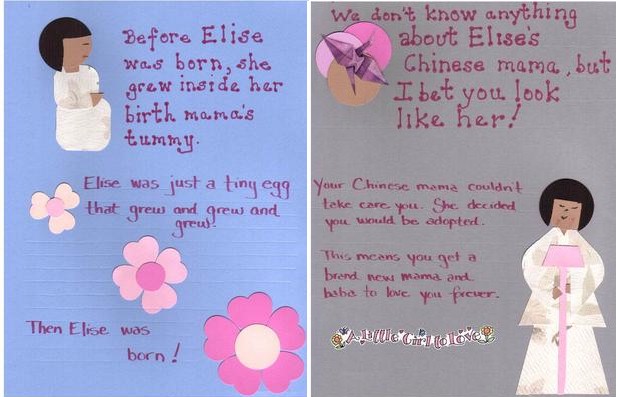 Before Elise
was born, she
grew inside her
birth mama's
tummy.
Elise was just a tiny egg
that grew and grew and
grew.
Then Elise was
born!
We don't know anything
about Elise's
Chinese mama, but
I bet you look
like her!
Your Chinese mama couldn't
take care you. She decided
you would be adopted.
This means you get a
brand new mama and
baba to love you frever.
A Little Girl to Love